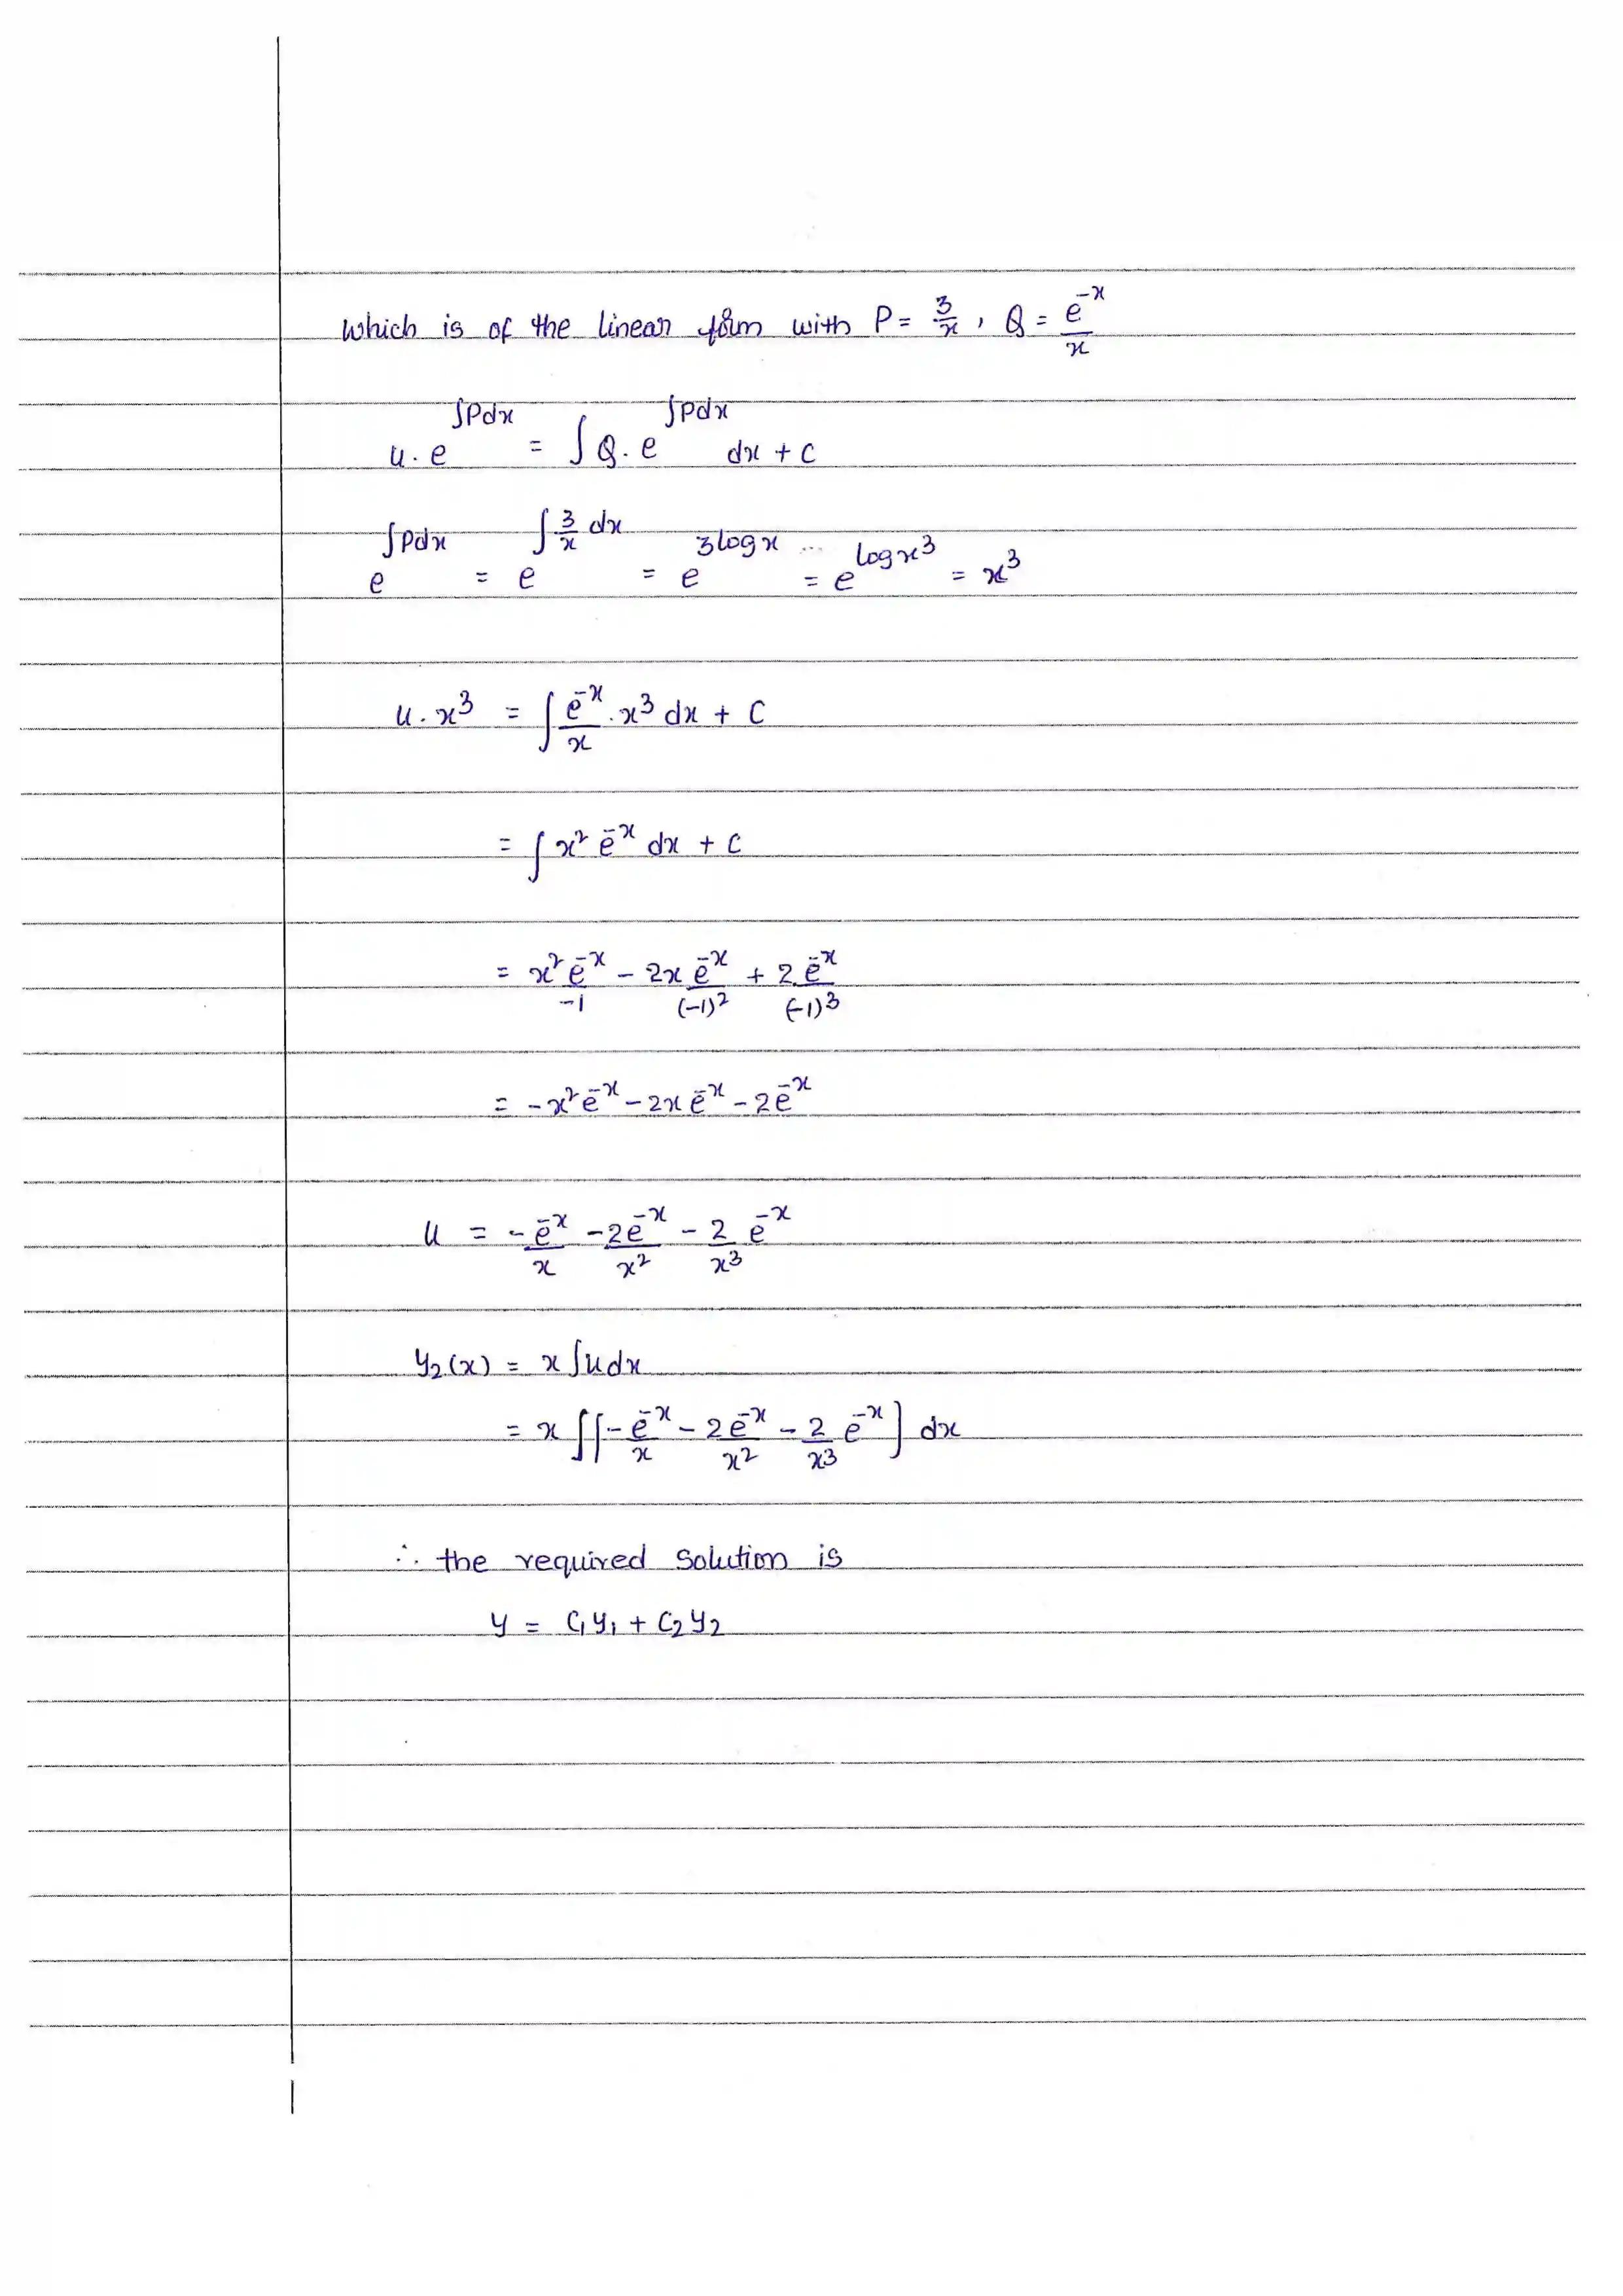 which is of the linear form with P = 3/x , Q = e^-x/x
u . e^∫Pdx = ∫ Q . e^∫Pdx dx + C
e^∫Pdx = e^∫3/x dx = e^3logx = e^logx^3 = x^3
u . x^3 = ∫ e^-x/x . x^3 dx + C
= ∫ x^2 e^-x dx + C
= x^2 e^-x/-1 - 2x e^-x/(-1)^2 + 2 e^-x/(-1)^3
= -x^2 e^-x - 2x e^-x - 2e^-x
u = - e^-x/x - 2e^-x/x^2 - 2/x^3 e^-x
y2(x) = x ∫udx
= x ∫[- e^-x/x - 2e^-x/x^2 - 2/x^3 e^-x] dx
∴ the required solution is
y = C1y1 + C2y2